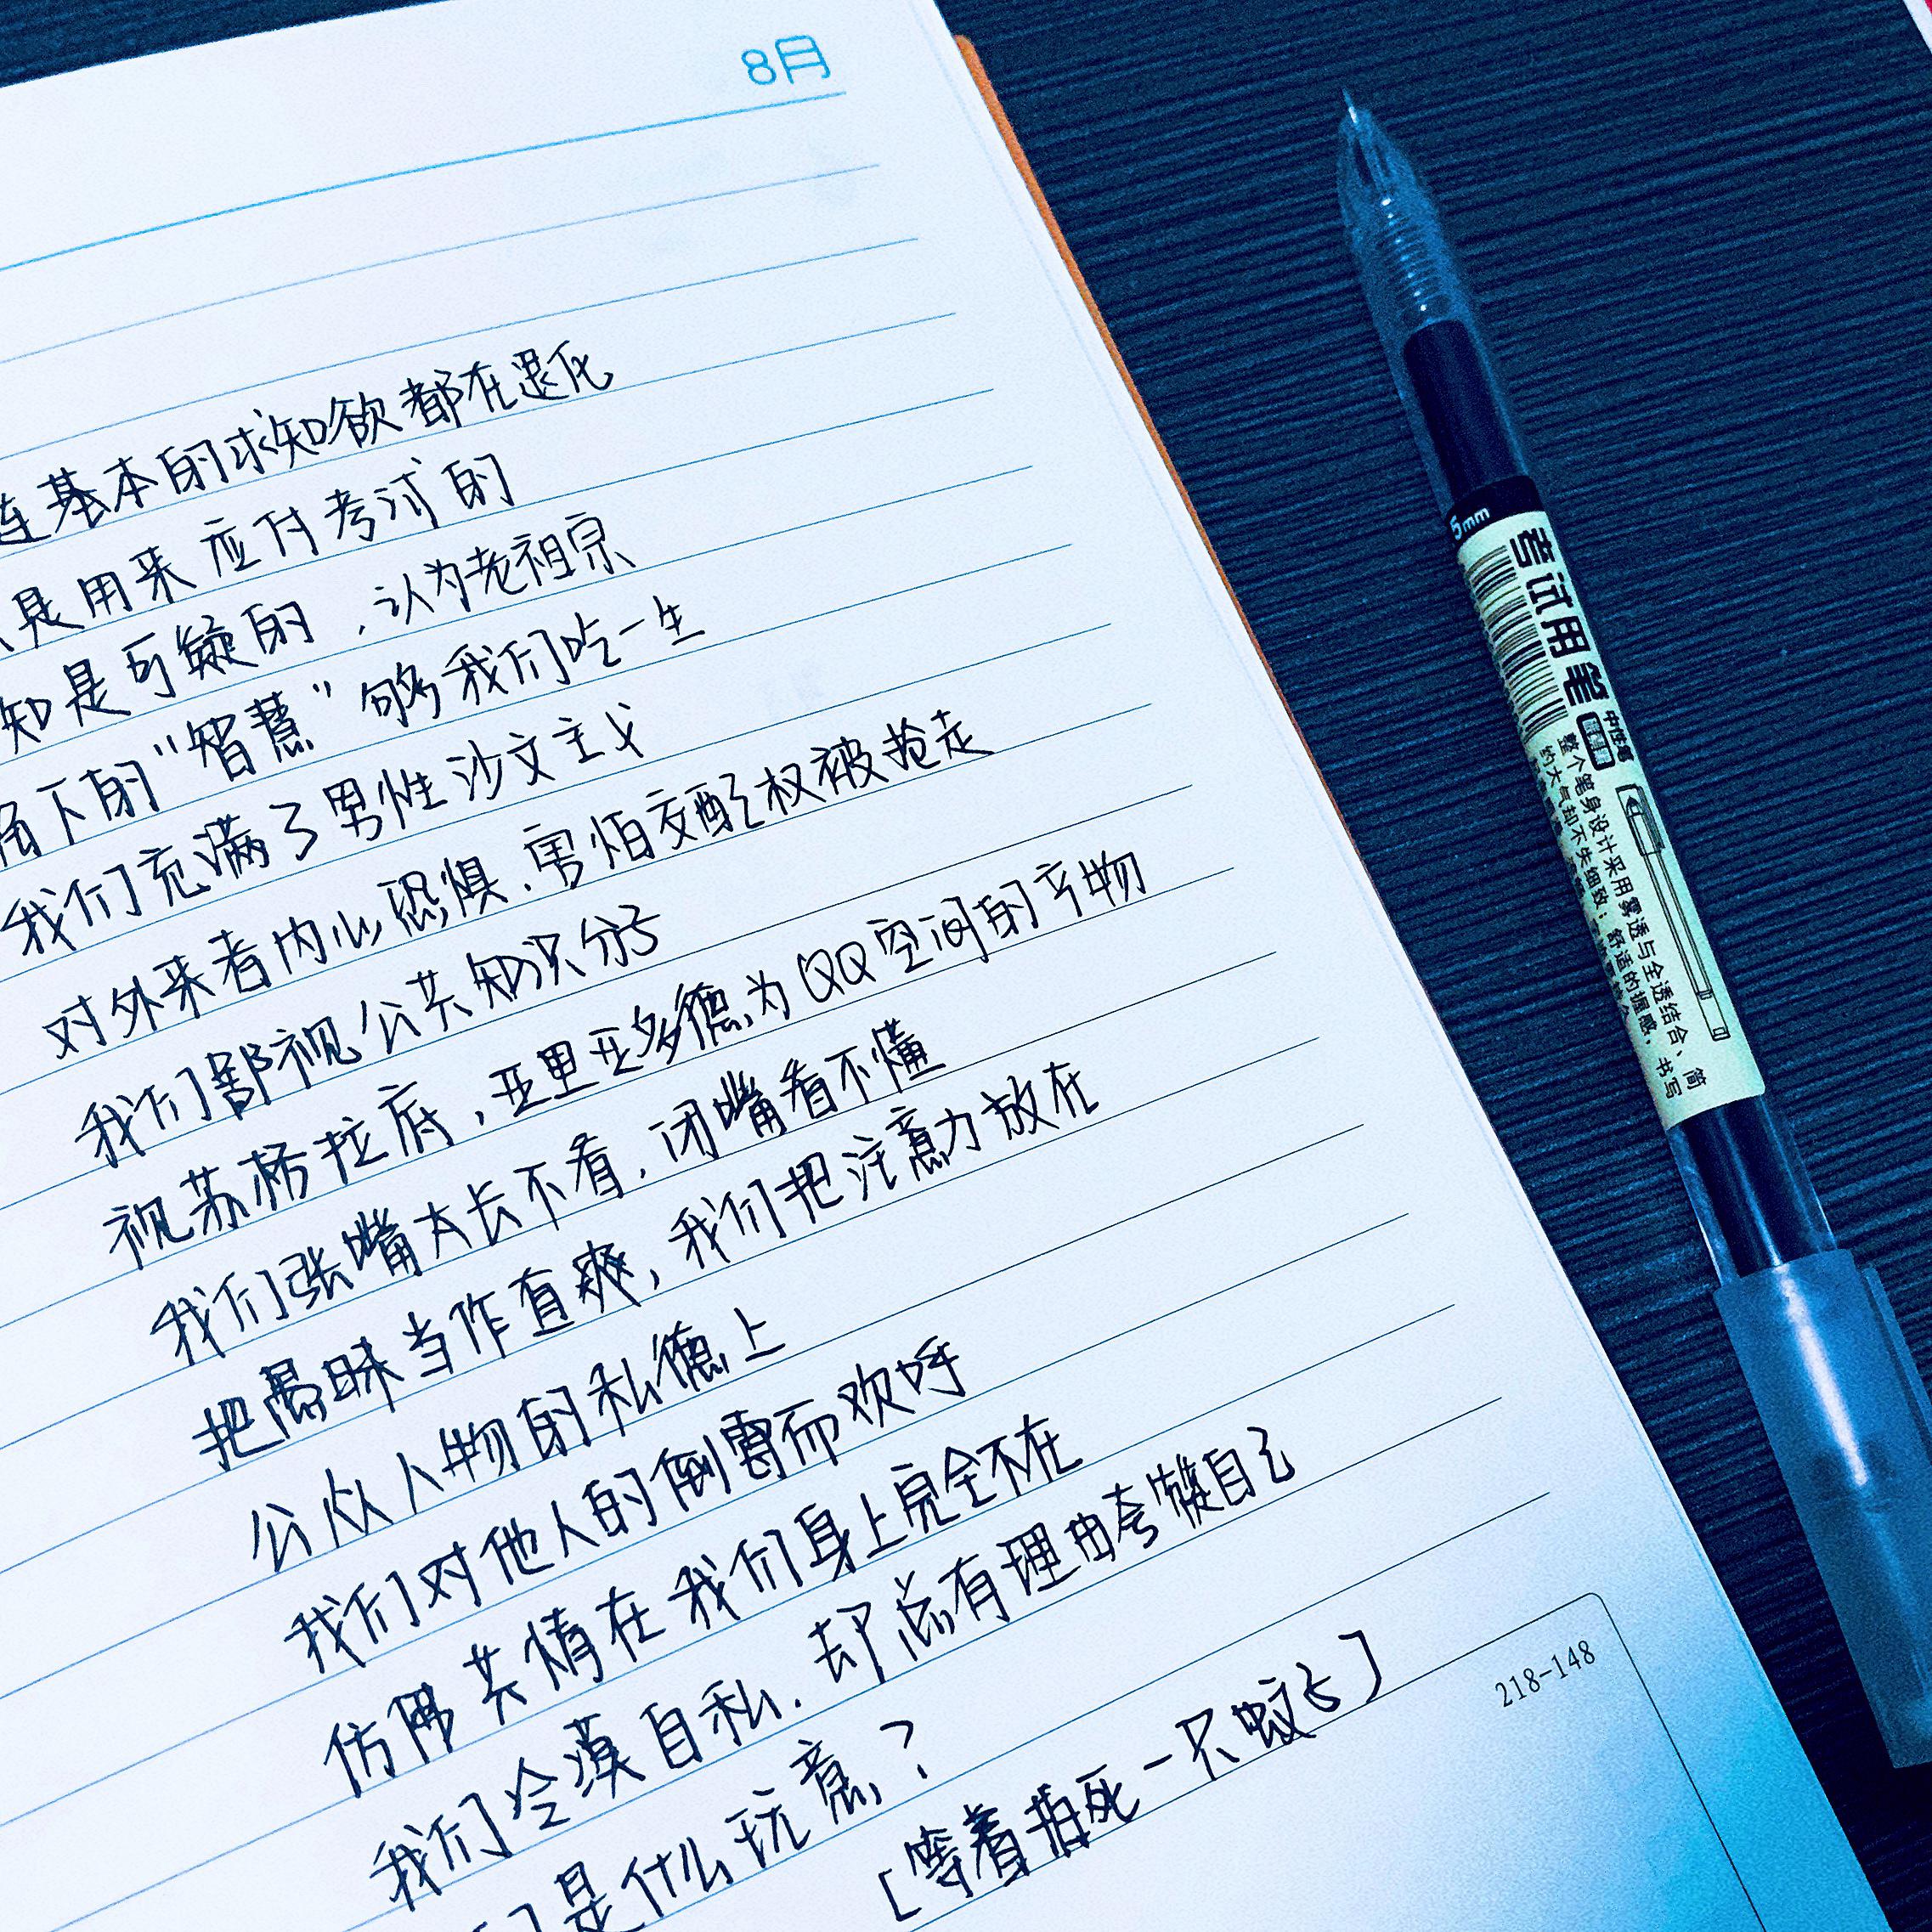 8月
连基本的求知欲都在退化
是用来应付考试的
知是可疑的，认为老祖宗
留下的“智慧”够我们吃一生
我们充满了男性沙文主义
对外来者内心恐惧，害怕交配权被抢走
我们鄙视公共知识分子
视苏格拉底，亚里亚多德为QQ空间的产物
我们张嘴太长不看，闭嘴看不懂
把愚昧当作直爽，我们把注意力放在
公众人物的私德上
我们对他人的倒霉而欢呼
仿佛共情在我们身上完全不在
我们冷漠自私，却总有理由夸赞自己
们是什么玩意？
[等着拍死一只蚊子]
218-148
5mm
考试用笔
中性笔
整个笔身设计采用雾透与全透结合、简
约大气却不失细致；舒适的握感、书写